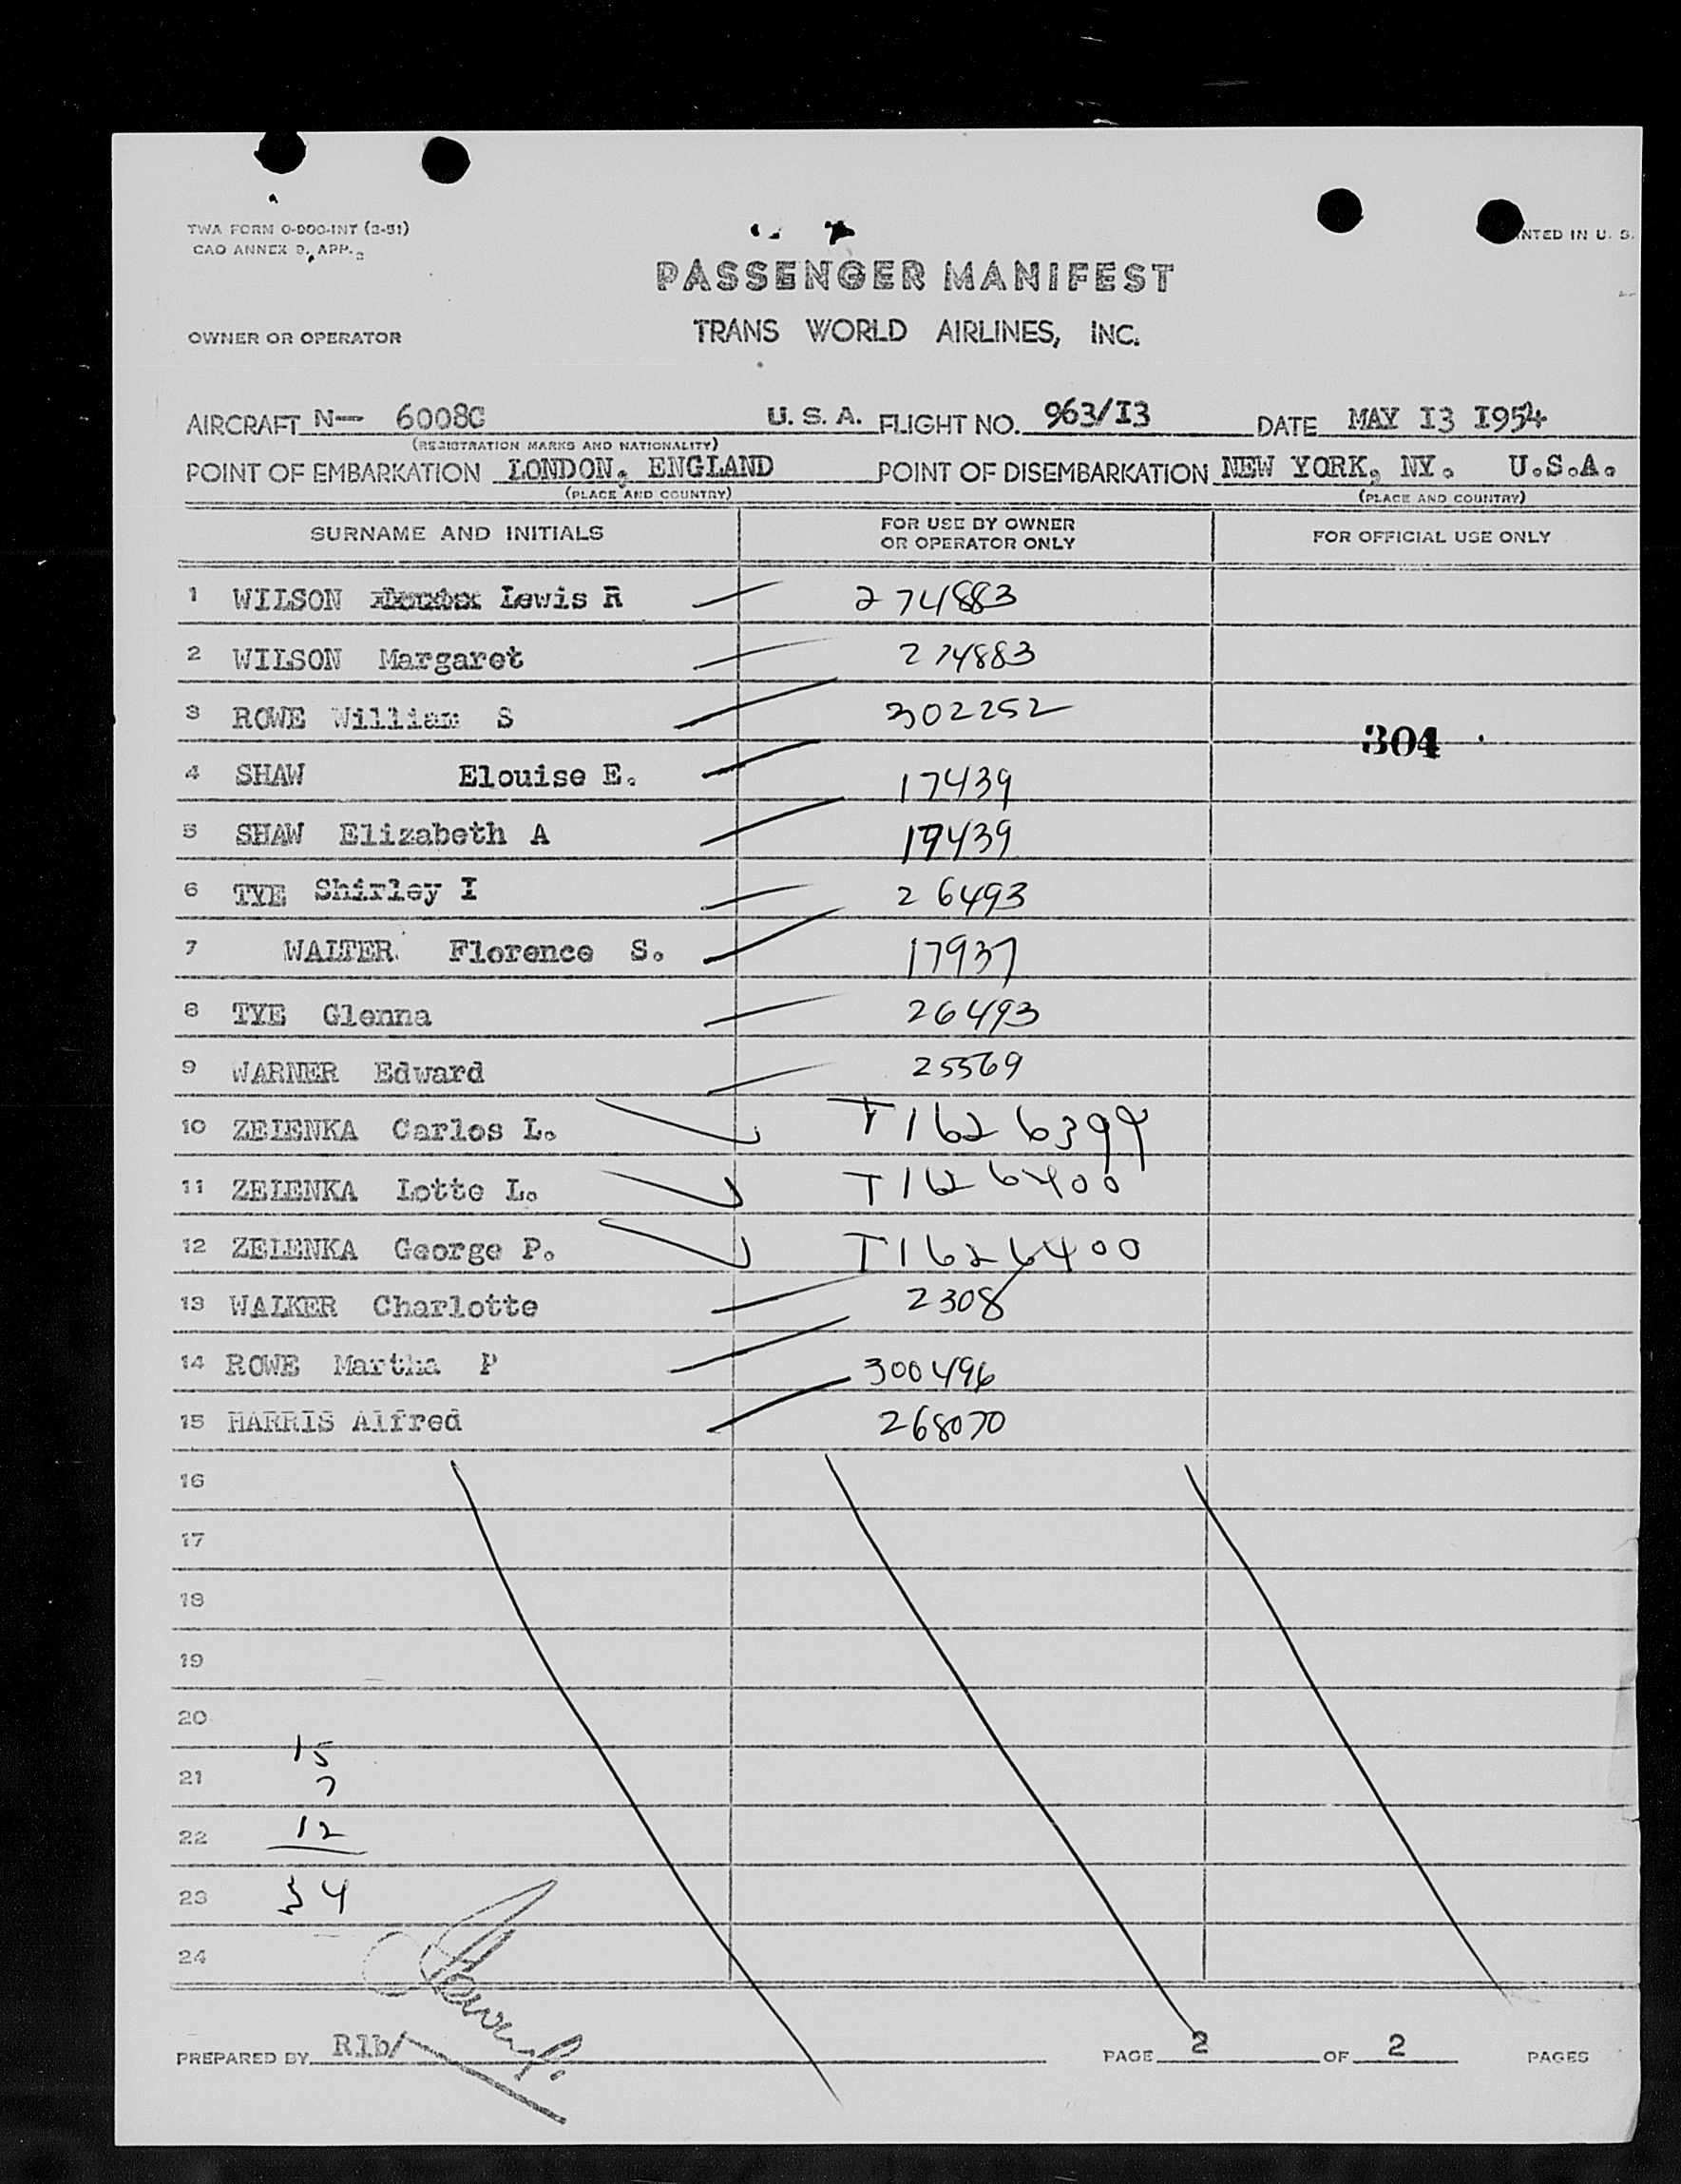 TWA FORM O-800-INT (3-51)
CAO ANNEX 9, APP.
NTED IN U. S.
PASSENGER MANIFEST
OWNER OR OPERATOR TRANS WORLD AIRLINES, INC.
AIRCRAFT N— 6008C U. S. A. FLIGHT NO. 963/I3 DATE MAY I3 I954
(REGISTRATION MARKS AND NATIONALITY)
POINT OF EMBARKATION LONDON, ENGLAND POINT OF DISEMBARKATION NEW YORK, NY. U.S.A.
(PLACE AND COUNTRY) (PLACE AND COUNTRY)
SURNAME AND INITIALS FOR USE BY OWNER OR OPERATOR ONLY FOR OFFICIAL USE ONLY
1 WILSON Lewis R 274883
2 WILSON Margaret 274883
3 ROWE William S 302252
304
4 SHAW Elouise E. 17439
5 SHAW Elizabeth A 17439
6 TYE Shirley I 26493
7 WALTER Florence S. 17937
8 TYE Glenna 26493
9 WARNER Edward 25569
10 ZELENKA Carlos L. T1626399
11 ZELENKA Lotte L. T1626400
12 ZELENKA George P. T1626400
13 WALKER Charlotte 2308
14 ROWE Martha P 300496
15 HARRIS Alfred 268070
16
17
18
19
20
15
21 7
22 12
23 34
24
PREPARED BY Rlb/ PAGE 2 OF 2 PAGES